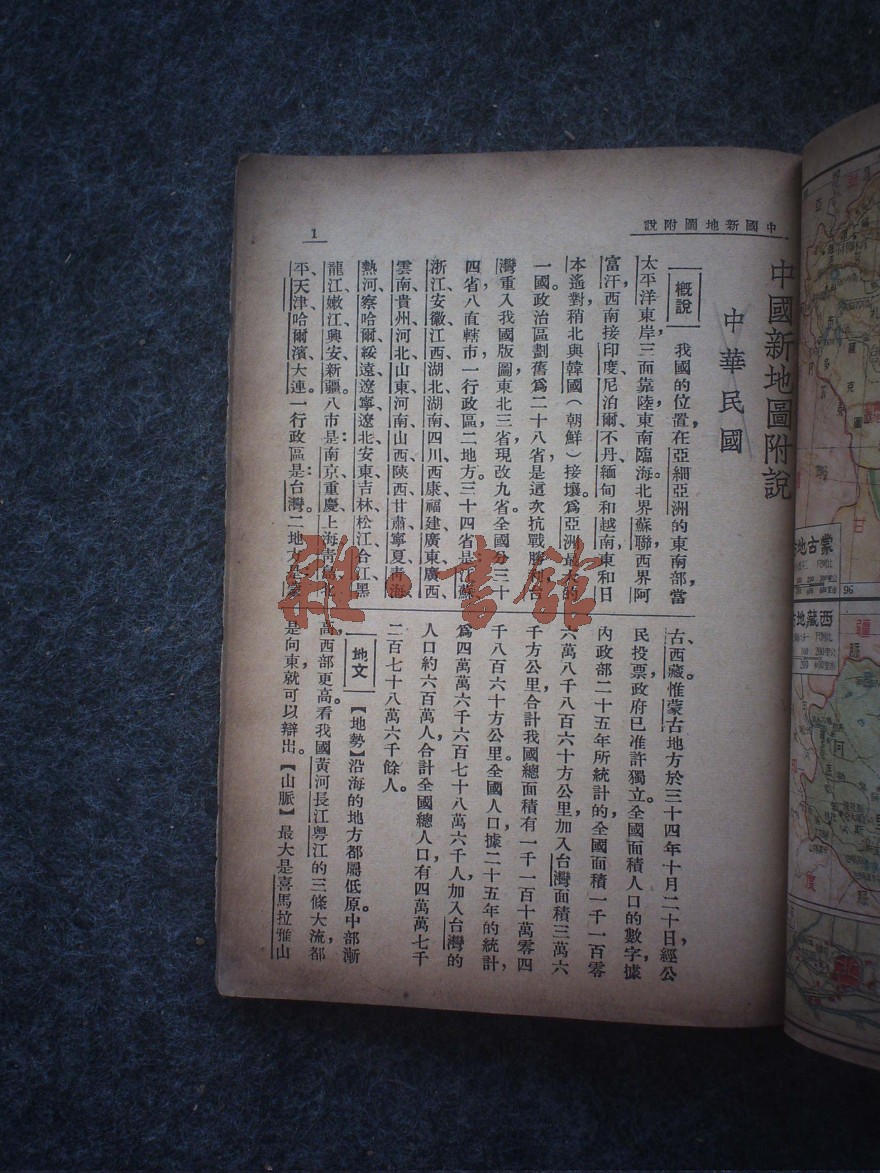 中國新地圖附說
1
中國新地圖附說
中華民國
概說 我國的位置，在亞細亞洲的東南部，當
太平洋東岸，三面靠陸，東南臨海。北界蘇聯，西界阿
富汗，西南接印度、尼泊爾、不丹、緬甸和越南，東和日
本遙對，稍北與韓國（朝鮮）接壤。爲亞洲最大的
一國。政治區劃舊爲二十八省，是這次抗戰勝利，台
灣重入我國版圖，東北三省現改九省，全國分三十
四省八直轄市一行政區，二地方。三十四省是：江蘇、
浙江、安徽、江西、湖北、湖南、四川、西康、福建、廣東、廣西、
雲南、貴州、河北、山東、河南、山西、陝西、甘肅、寧夏、青海、
熱河、察哈爾、綏遠、遼寧、遼北、安東、吉林、松江、合江、黑
龍江、嫩江、興安、新疆。八市是：南京、重慶、上海、青島、北
平、天津、哈爾濱、大連。一行政區是：台灣。二地方是：蒙
古、西藏。惟蒙古地方於三十四年十月二十日，經公
民投票，政府已准許獨立。全國面積人口的數字，據
內政部二十五年所統計的，全國面積一千一百零
六萬八千八百六十方公里，加入台灣面積三萬六
千方公里，合計我國總面積有一千一百十萬零四
千八百六十方公里。全國人口據二十五年的統計，
爲四萬萬六千六百七十八萬六千人，加入台灣的
人口約六百萬人，合計全國總人口，有四萬萬七千
二百七十八萬六千餘人。
地文 【地勢】沿海的地方都屬低原。中部漸
高，西部更高。看我國黃河長江粵江的三條大流，都
是向東，就可以辯出。【山脈】最大是喜馬拉雅山
雜·書館
蒙古地
96
西藏地
甘
疆
度